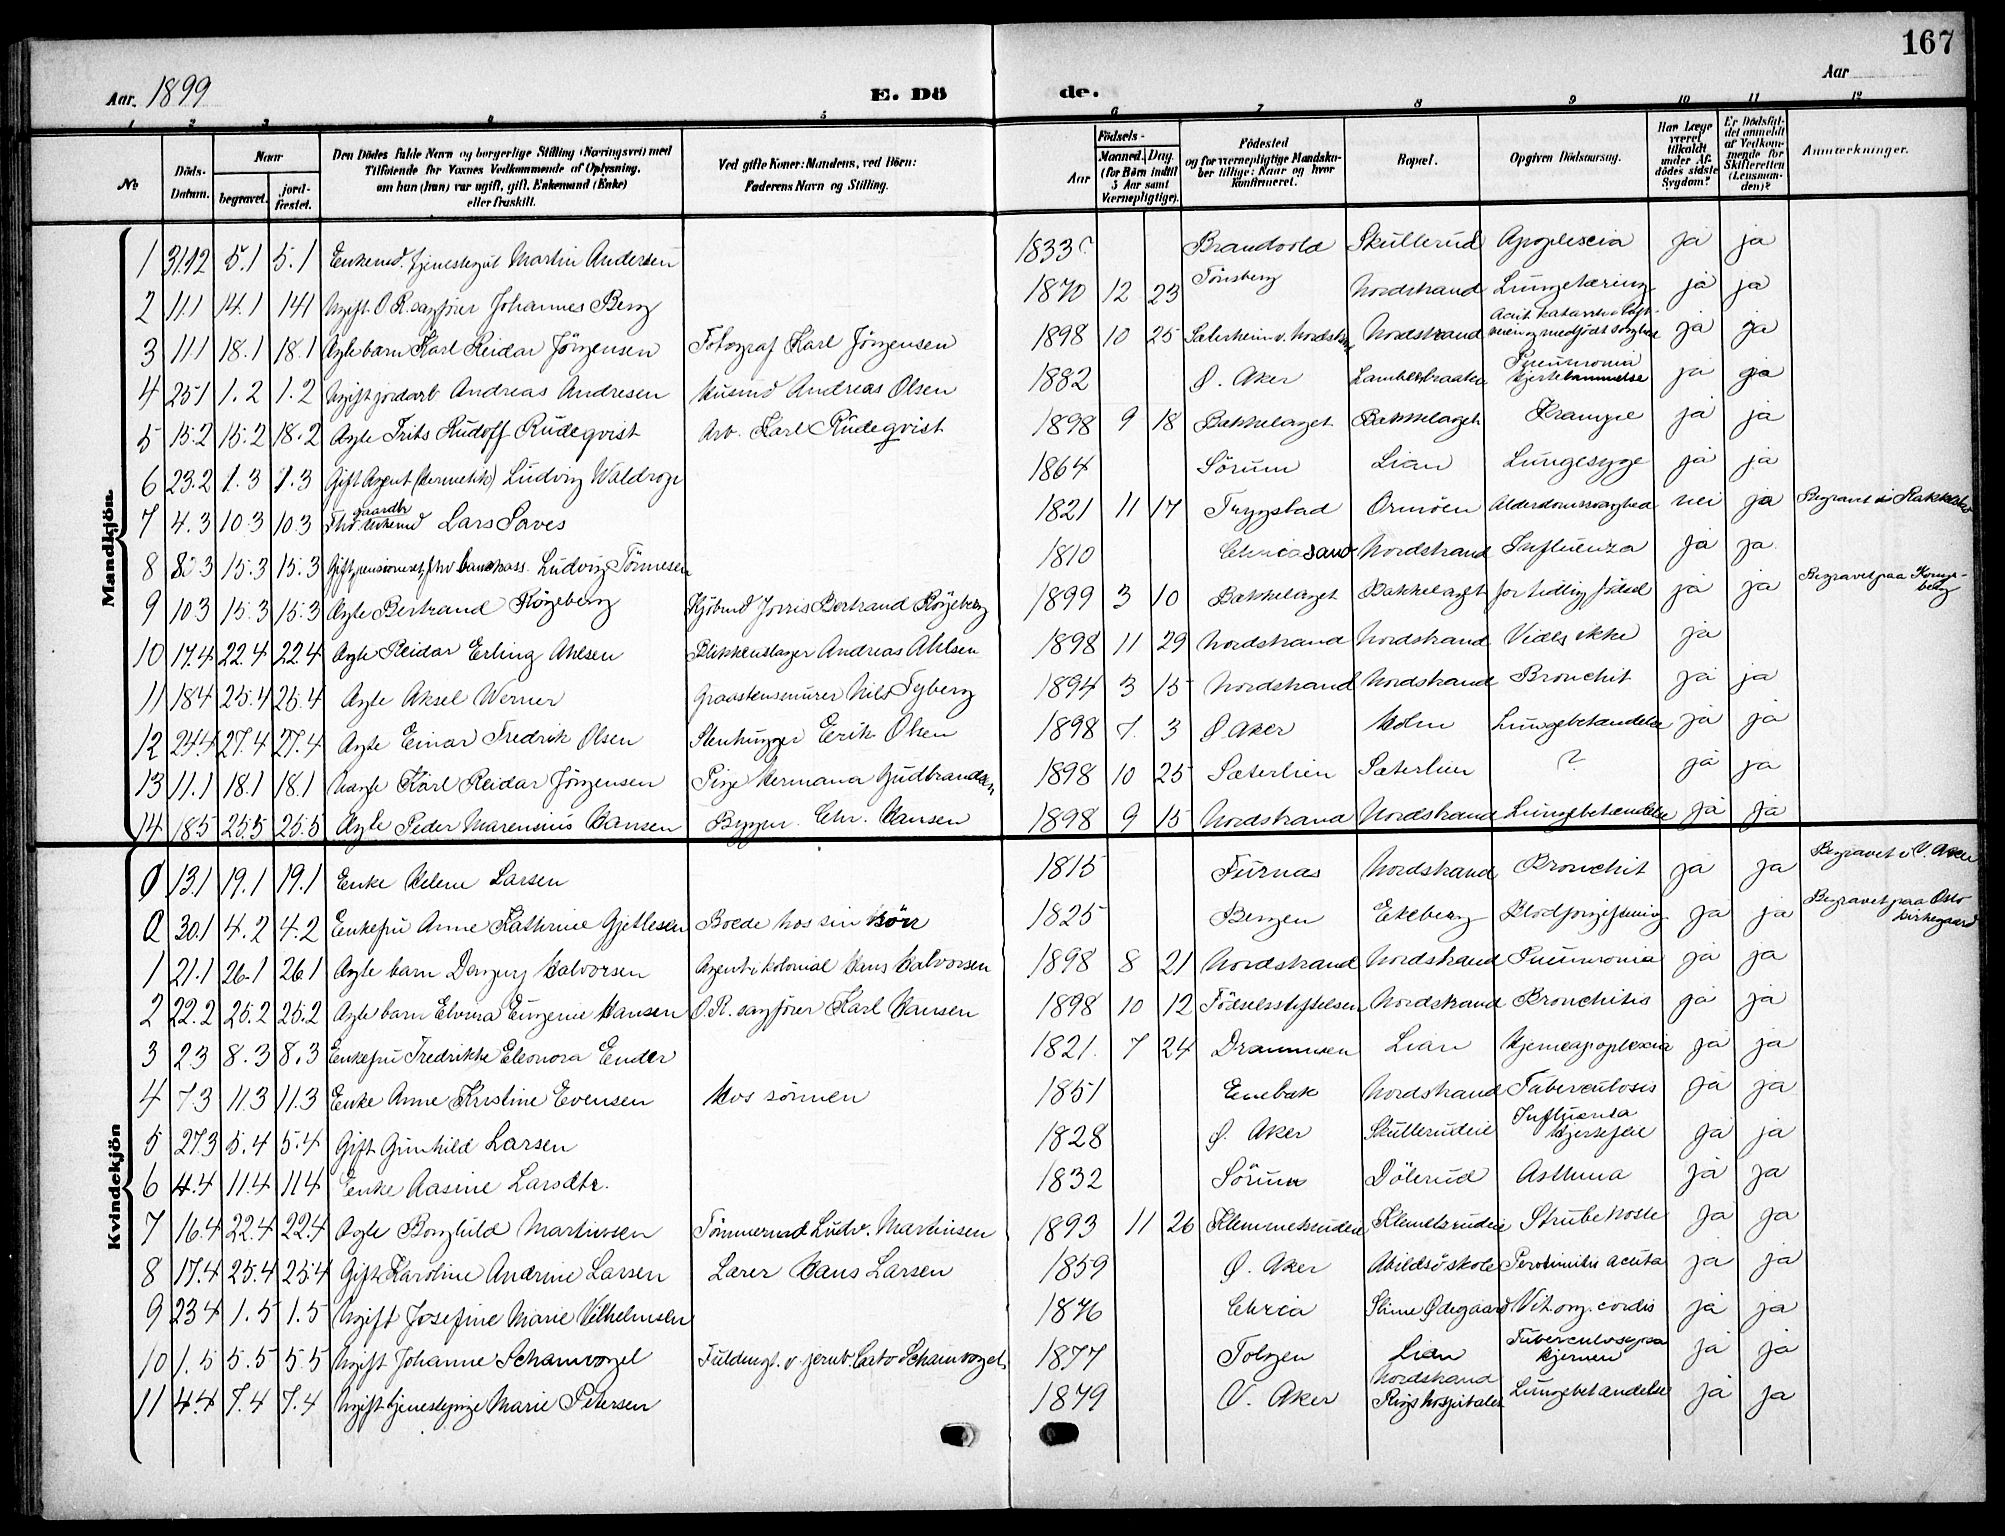 167
Aar. 1899
E. Dö
de.
Aar
1 2 3 4 5 6 7 8 9 10 11 12
No
Döds-Datum.
Naar
begravet.
jord-fæstet.
Den Dödes fulde Navn og borgerlige Stilling (Næringsvei) med
Tilföiende for Voxnes Vedkommende af Oplysning,
om han (hun) var ugift, gift, Enkemand (Enke)
eller fraskilt.
Ved gifte Koner: Mandens, ved Börn:
Faderens Navn og Stilling.
Födsels-
Aar
Maaned. Dag.
(for Börn indtil
5 Aar samt
Værnepligtige).
Födested
og for værnepligtige Mandskaber tillige: Naar og hvor
konfirmeret.
Bopæl.
Opgiven Dödsaarsag.
Har Læge
været
tilkaldt
under Afdödes sidste
Sygdom?
Er Dödsfaldet anmeldt
af Vedkommende for
Skifteretten
(Lensmanden)?
Anmærkninger.
Mandkjön.
1 31.12 5.1 5.1 Enkemd. tjenestegut Martin Andersen 1833? Brandvold Skullerud Apoplexia ja ja
2 11.1 14.1 14.1 Ugift O.R.sagfører Johannes Berg 1870 12 23 Tönsberg Nordstrand Lungetæring ja ja
3 11.1 18.1 18.1 Ægte barn Karl Reidar Jörgensen Fotograf Karl Jörgensen 1898 10 25 Sæterheim v. Nordstrand Nordstrand Acut katarrh i luftveien og medfödt svaghed ja ja
4 25.1 1.2 1.2 Ugift jordarb Andreas Andresen Husmd Andreas Olsen 1882 Ø. Aker Pneumonia Hjertelammelse ja ja
5 15.2 15.2 18.2 Ægte Frits Rudolf Rudeqvist Arb. Karl Rudeqvist 1898 9 18 Bækkelaget Bækkelaget Krampe ja ja
6 23.2 1.3 1.3 Gift Agent (Hermetik) Ludvig Waldrop 1864 Sörum Lian Lungesyge ja ja
7 4.3 10.3 10.3 Fhv. gaardbr Enkemd Lars Saves 1821 11 17 Trygstad Ormöen Alderdomssvaghed nei ja
8 8.3 15.3 15.3 Gift pensioneret fhv bankkass. Ludvig Tönnesen 1810 Christiasand Nordstrand Influenza ja ja
9 10.3 15.3 15.3 Ægte Bertrand Röyeberg Kjöbmd Jorris Bertrand Röyeberg 1899 3 10 Bækkelaget Bækkelaget for tidlig födsel ja ja Begravet paa Kongsberg
10 17.4 22.4 22.4 Ægte Reidar Erling Ahlsen Blikkenslager Andreas Ahlsen 1898 11 29 Nordstrand Nordstrand Vides ikke ja
11 18.4 25.4 25.4 Ægte Aksel Werner Graastensmurer Nils Tyberg 1894 3 15 Nordstrand Nordstrand Bronchit ja ja
12 24.4 27.4 27.4 Ægte Einar Fredrik Olsen Stenhugger Erik Olsen 1898 7 3 Ø. Aker Holm Lungebetændelse ja ja
13 11.1 18.1 18.1 Uægte Karl Reidar Jörgensen Pige Hermana Gudbrandsen 1898 10 25 Sæterlien Sæterlien ? ja ja
14 18.5 25.5 25.5 Ægte Peder Marensius Hansen Bygm. Chr. Hansen 1898 9 15 Nordstrand Nordstrand Lungebetændelse ja ja
Kvindekjön
0 13.1 19.1 19.1 Enke Helene Larsen 1815 Furnæs Nordstrand Bronchit ja ja Begravet i V. Aker
0 30.1 4.2 4.2 Enkefru Anne Kathrine Gjetlesen Boede hos sin Sön 1825 Bergen Ekeberg Blodforgiftning ja ja Begravet paa Oslo kirkegaard
1 21.1 26.1 26.1 Ægte barn Dagny Halvorsen Agent i kolonial Hans Halvorsen 1898 8 21 Nordstrand Nordstrand Pneumonia ja ja
2 22.2 25.2 25.2 Ægte barn Elvira Eugenie Hansen O.R. sagförer Karl Hansen 1898 10 12 Födselsstiftelsen Nordstrand Bronchitis ja ja
3 2.3 8.3 8.3 Enkefru Fredrikke Eleonora Ender 1821 7 24 Drammen Lian Hjerneapoplexia ja ja
4 7.3 11.3 11.3 Enke Anne Kristine Evensen Hos sönnen 1851 Enebak Nordstrand Tuberculosis ja ja
5 27.3 5.4 5.4 Gift Gunhild Larsen 1828 Ø. Aker Skullerudeie Influenza Hjertefeil ja ja
6 4.4 11.4 11.4 Enke Aasine Larsdtr. 1832 Sörum Dölerud Asthma ja ja
7 16.4 22.4 22.4 Ægte Borghild Martinsen Tömmermd Ludv. Martinsen 1893 11 26 Klemmetsrudeie Klemetsrudeie Strubehoste ja ja
8 17.4 25.4 25.4 Gift Karoline Andrine Larsen Lærer Hans Larsen 1859 Ø. Aker Abildsö skole Peritonitis acuta ja ja
9 23.4 1.5 1.5 Ugift Josefine Marie Vilhelmsen 1876 Chria Slime Ødegaard Vit. org. cordis ja ja
10 1.5 5.5 5.5 Ugift Johanne Schamvogel Fuldmgt. v. jernb. Cato Schamvogel 1877 Tolgen Lian Tuberculose paa hjernen ja ja
11 4.4 7.4 7.4 Ugift tjenestepige Marie Petersen 1879 V. Aker Nordstrand Rigshospitalet Lungebetændelse ja ja